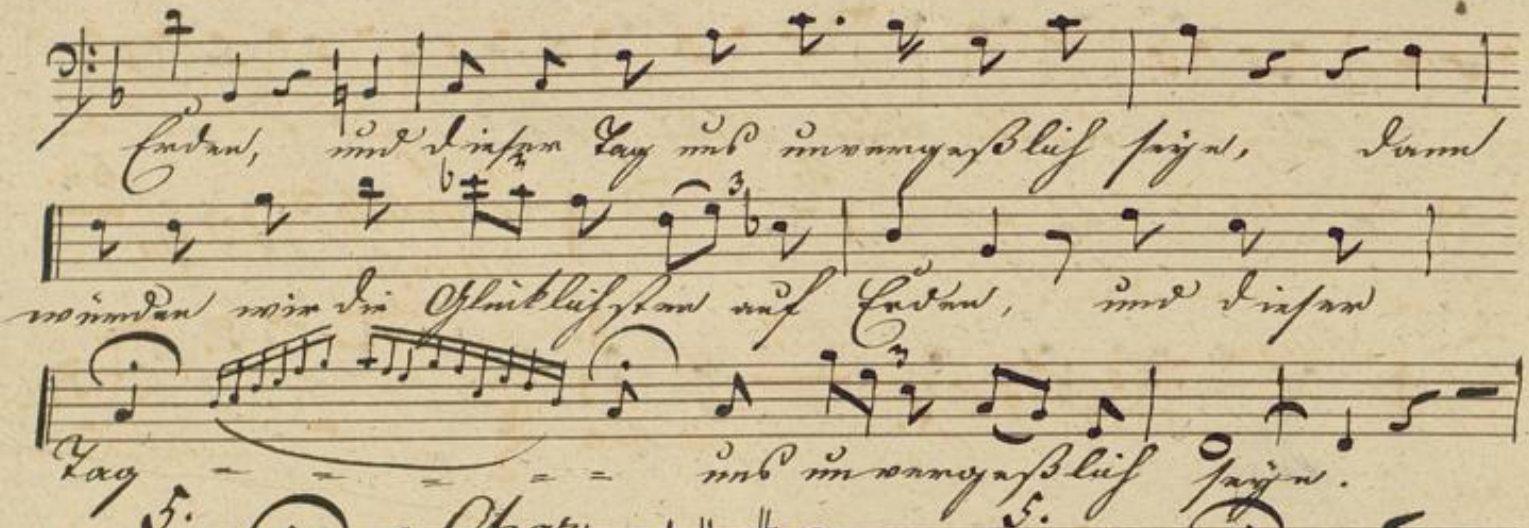 Erden, und dieser Tag uns unvergeßlich seye, dann
würden wir die Glücklichsten auf Erden, und dieser
3
Tag - - - - - - uns unvergeßlich seye.
3
5. 5.